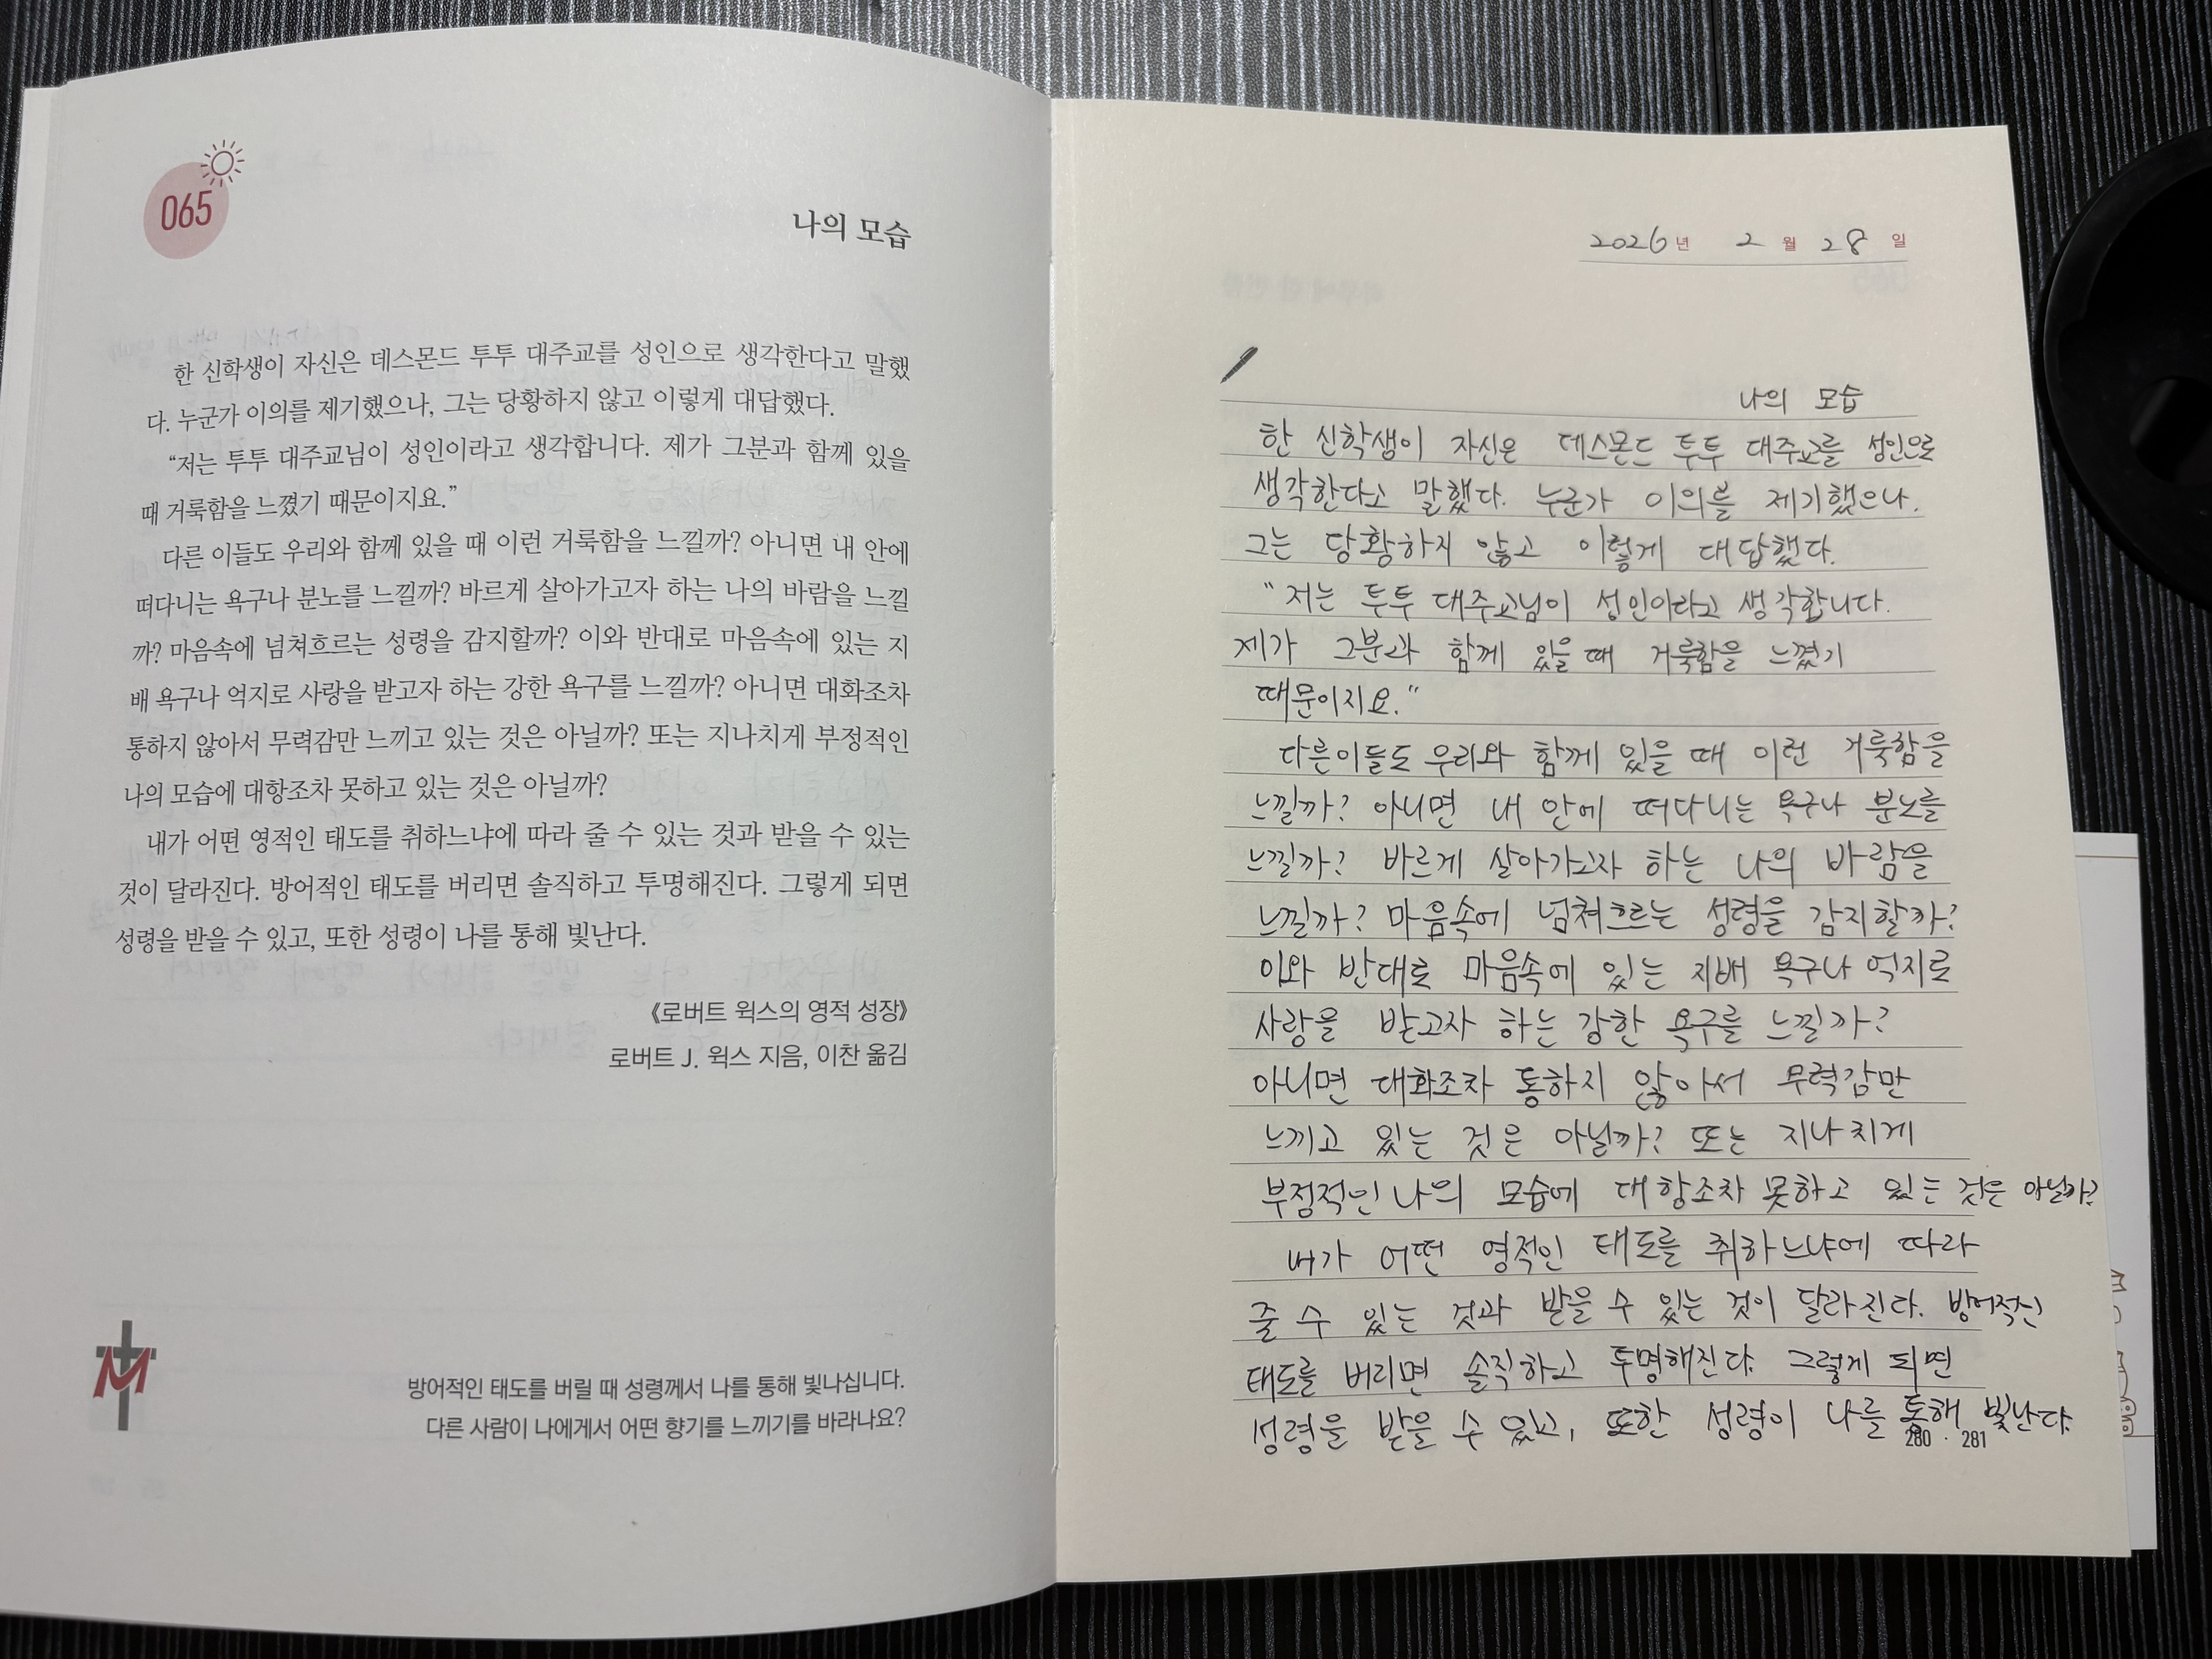 065
나의 모습
한 신학생이 자신은 데스몬드 투투 대주교를 성인으로 생각한다고 말했
다. 누군가 이의를 제기했으나, 그는 당황하지 않고 이렇게 대답했다.
“저는 투투 대주교님이 성인이라고 생각합니다. 제가 그분과 함께 있을
때 거룩함을 느꼈기 때문이지요.”
다른 이들도 우리와 함께 있을 때 이런 거룩함을 느낄까? 아니면 내 안에
떠다니는 욕구나 분노를 느낄까? 바르게 살아가고자 하는 나의 바람을 느낄
까? 마음속에 넘쳐흐르는 성령을 감지할까? 이와 반대로 마음속에 있는 지
배 욕구나 억지로 사랑을 받고자 하는 강한 욕구를 느낄까? 아니면 대화조차
통하지 않아서 무력감만 느끼고 있는 것은 아닐까? 또는 지나치게 부정적인
나의 모습에 대항조차 못하고 있는 것은 아닐까?
내가 어떤 영적인 태도를 취하느냐에 따라 줄 수 있는 것과 받을 수 있는
것이 달라진다. 방어적인 태도를 버리면 솔직하고 투명해진다. 그렇게 되면
성령을 받을 수 있고, 또한 성령이 나를 통해 빛난다.
《로버트 윅스의 영적 성장》
로버트 J. 윅스 지음, 이찬 옮김
M
방어적인 태도를 버릴 때 성령께서 나를 통해 빛나십니다.
다른 사람이 나에게서 어떤 향기를 느끼기를 바라나요?
2026년 2월 28일
나의 모습
한 신학생이 자신은 데스몬드 투투 대주교를 성인으로
생각한다고 말했다. 누군가 이의를 제기했으나,
그는 당황하지 않고 이렇게 대답했다.
“저는 투투 대주교님이 성인이라고 생각합니다.
제가 그분과 함께 있을 때 거룩함을 느꼈기
때문이지요.”
다른이들도 우리와 함께 있을 때 이런 거룩함을
느낄까? 아니면 내 안에 떠다니는 욕구나 분노를
느낄까? 바르게 살아가고자 하는 나의 바람을
느낄까? 마음속에 넘쳐흐르는 성령을 감지할까?
이와 반대로 마음속에 있는 지배 욕구나 억지로
사랑을 받고자 하는 강한 욕구를 느낄까?
아니면 대화조차 통하지 않아서 무력감만
느끼고 있는 것은 아닐까? 또는 지나치게
부정적인 나의 모습에 대항조차 못하고 있는 것은 아닐까?
내가 어떤 영적인 태도를 취하느냐에 따라
줄 수 있는 것과 받을 수 있는 것이 달라진다. 방어적인
태도를 버리면 솔직하고 투명해진다. 그렇게 되면
성령을 받을 수 있고, 또한 성령이 나를 통해 빛난다.
280 · 281